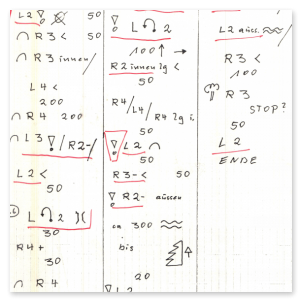 L2 50
R3 < 50
R3 innen/
L4 <
200
R4 200
L3 /R2-/
L2 <
50
L 2 )(
30
R4+
30
R4
L 2
100
R2 innen lg <
50
R4/L4/R4 lg i.
50
L2
50
R3-< 50
R2- aüssen
ca 300
bis
20
L2
L2 aüss.
R3 <
100
R3
STOP?
50
L2
ENDE